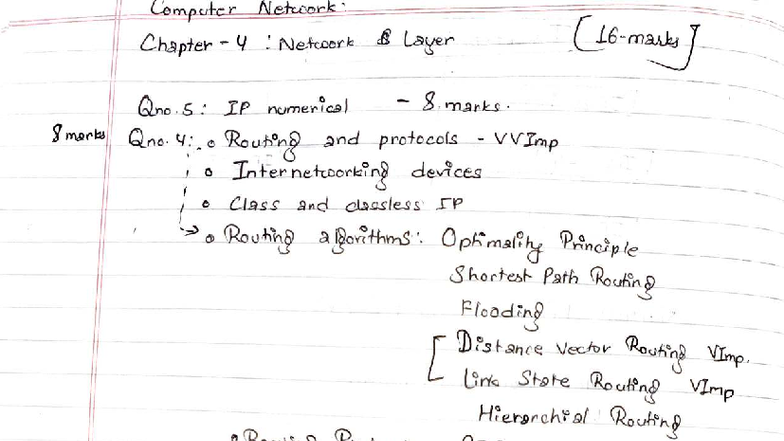 Computer Network:
Chapter - 4 : Network Layer [16-marks]
Qno. 5 : IP numerical - 8 marks.
8 marks Qno. 4 : • Routing and protocols - VVImp
• Internetworking devices
• Class and classless IP
→ • Routing algorithms : Optimality Principle
Shortest Path Routing
Flooding
[ Distance Vector Routing VImp.
Link State Routing VImp
Hierarchial Routing